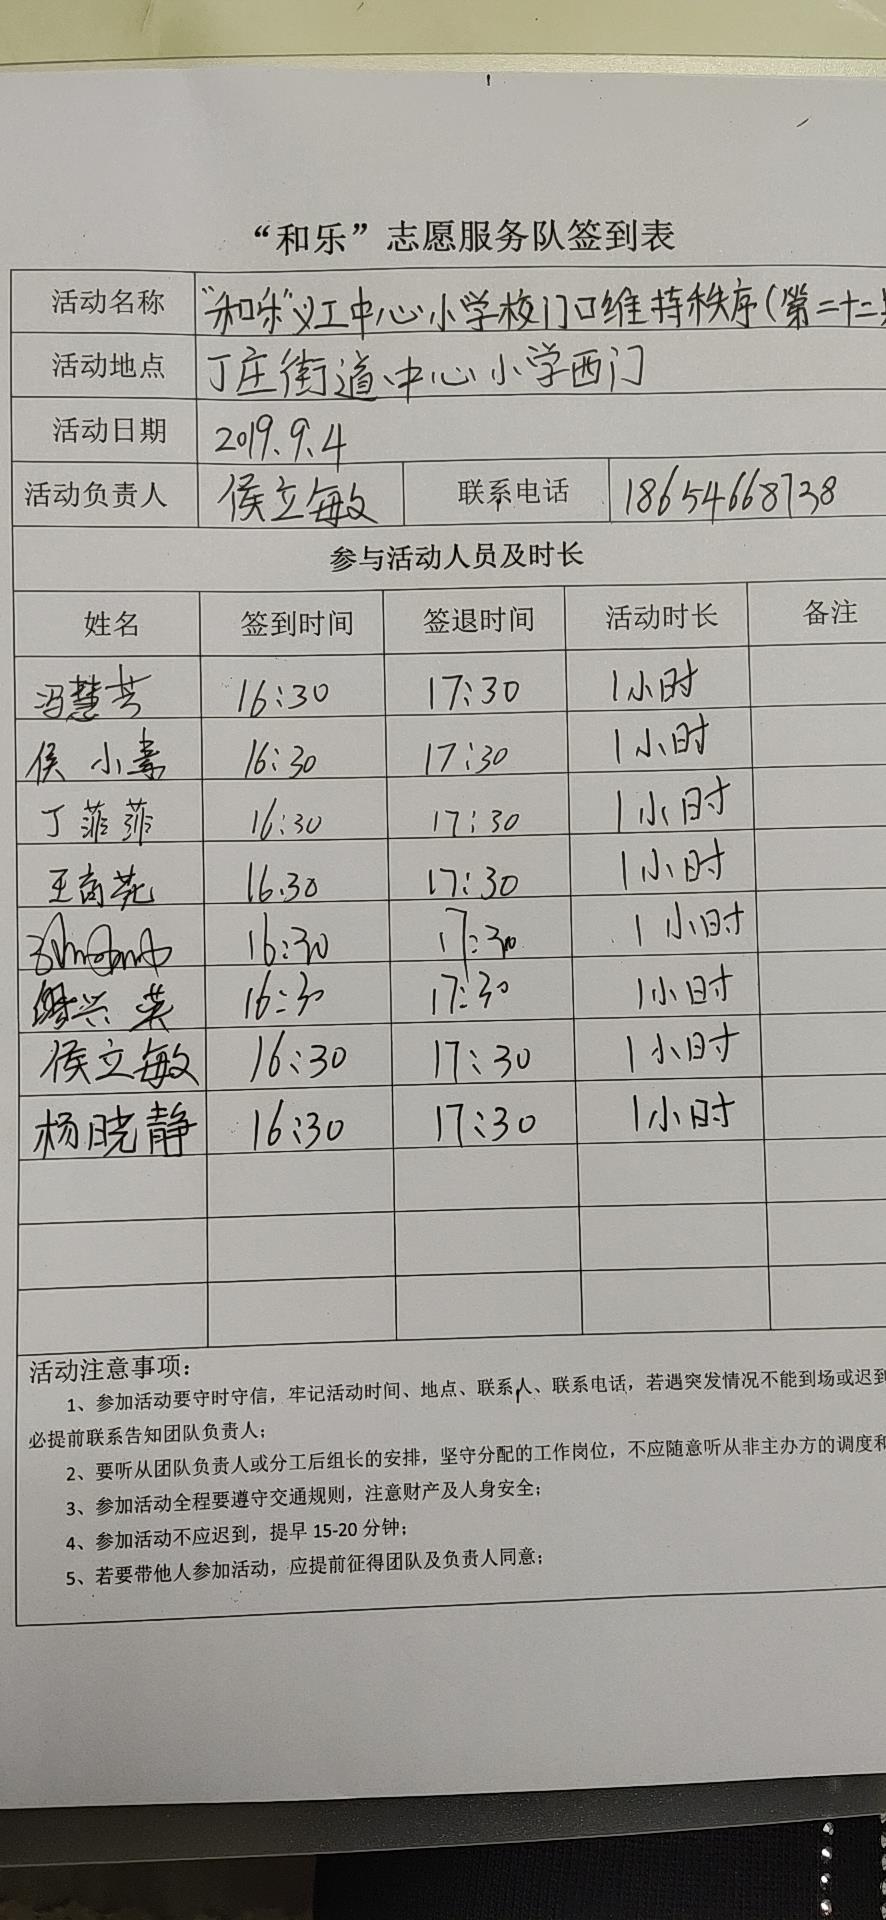 “和乐”志愿服务队签到表
活动名称 “和乐”义工中心小学校门口维持秩序(第二十二
活动地点 丁庄街道中心小学西门
活动日期 2019.9.4
活动负责人 侯立敏 联系电话 18654668738
参与活动人员及时长
姓名 签到时间 签退时间 活动时长 备注
冯慧芳 16:30 17:30 1小时
侯小素 16:30 17:30 1小时
丁菲菲 16:30 17:30 1小时
王 16:30 17:30 1小时
16:30 17:30 1小时
兴英 16:30 17:30 1小时
侯立敏 16:30 17:30 1小时
杨晓静 16:30 17:30 1小时
活动注意事项：
1、参加活动要守时守信，牢记活动时间、地点、联系人、联系电话，若遇突发情况不能到场或迟到
必提前联系告知团队负责人；
2、要听从团队负责人或分工后组长的安排，坚守分配的工作岗位，不应随意听从非主办方的调度和
3、参加活动全程要遵守交通规则，注意财产及人身安全；
4、参加活动不应迟到，提早 15-20 分钟；
5、若要带他人参加活动，应提前征得团队及负责人同意；